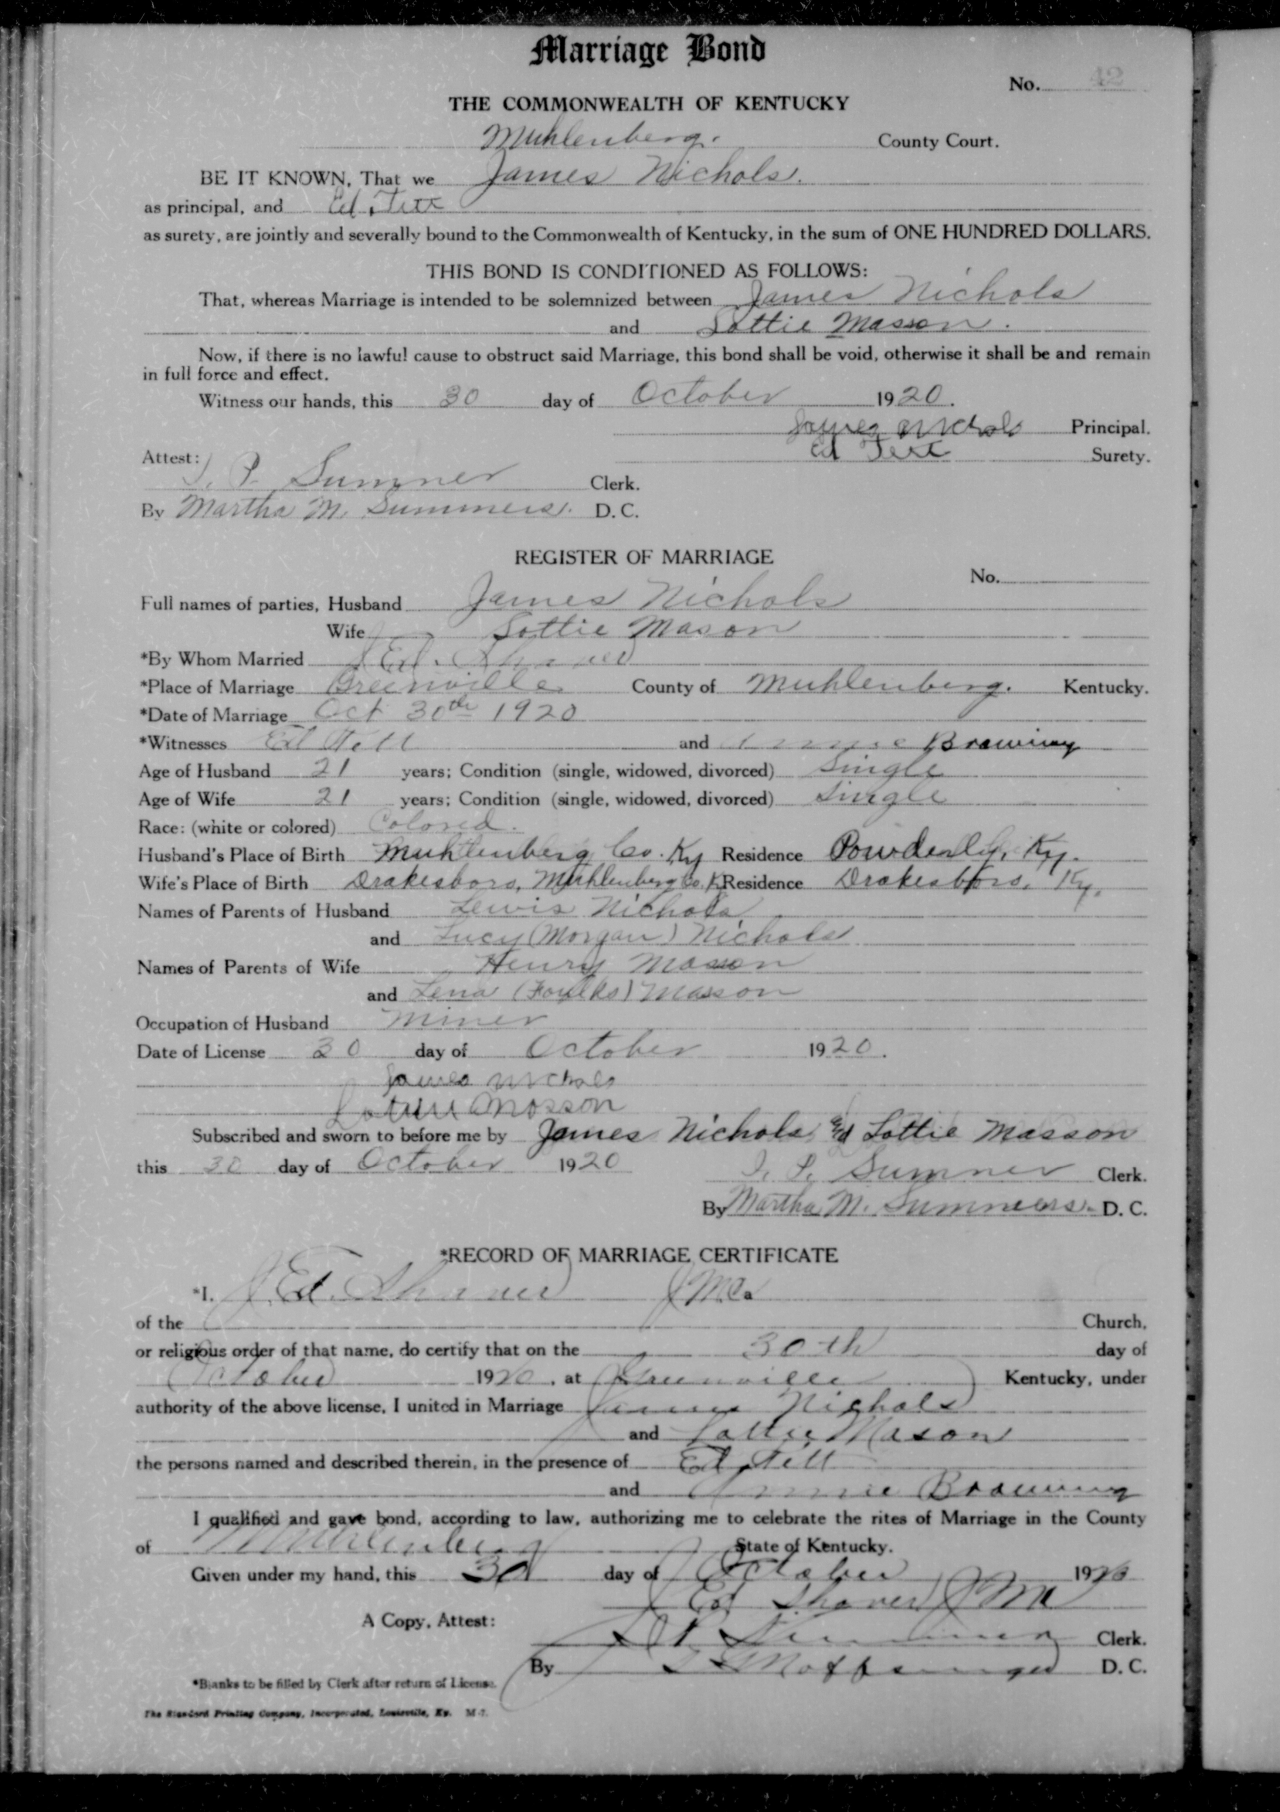 Marriage Bond
No. 42
THE COMMONWEALTH OF KENTUCKY
Muhlenberg. County Court.
BE IT KNOWN, That we James Nichols.
as principal, and Ed Tett
as surety, are jointly and severally bound to the Commonwealth of Kentucky, in the sum of ONE HUNDRED DOLLARS.
THIS BOND IS CONDITIONED AS FOLLOWS:
That, whereas Marriage is intended to be solemnized between James Nichols
and Lottie Masson.
Now, if there is no lawful cause to obstruct said Marriage, this bond shall be void, otherwise it shall be and remain
in full force and effect.
Witness our hands, this 30 day of October 1920.
James Nichols Principal.
Attest: Ed Tett Surety.
P. Sumner Clerk.
By Martha M. Summers. D. C.
REGISTER OF MARRIAGE
No.
Full names of parties, Husband James Nichols
Wife Lottie Mason
*By Whom Married J Ed. Shaver
*Place of Marriage Greenville County of Muhlenberg. Kentucky.
*Date of Marriage Oct 30th 1920
*Witnesses Ed Tett and Annie Browning
Age of Husband 21 years; Condition (single, widowed, divorced) Single
Age of Wife 21 years; Condition (single, widowed, divorced) Single
Race: (white or colored) Colored.
Husband's Place of Birth Muhlenberg Co. Ky Residence Powderly, Ky.
Wife's Place of Birth Drakesboro, Muhlenberg Co. Ky Residence Drakesboro, Ky.
Names of Parents of Husband Lewis Nichols
and Lucy (Morgan) Nichols
Names of Parents of Wife Henry Masson
and Lena (Foulks) Masson
Occupation of Husband Miner
Date of License 30 day of October 1920.
James Nichols
Lottie Masson
Subscribed and sworn to before me by James Nichols and Lottie Masson
this 30 day of October 1920
P. Sumner Clerk.
By Martha M. Summers. D. C.
*RECORD OF MARRIAGE CERTIFICATE
*I, J. Ed. Shaver
of the Church,
or religious order of that name, do certify that on the 30th day of
October 1920, at Greenville Kentucky, under
authority of the above license, I united in Marriage James Nichols
and Lottie Mason
the persons named and described therein, in the presence of Ed Tett
and Annie Browning
I qualified and gave bond, according to law, authorizing me to celebrate the rites of Marriage in the County
of Muhlenberg State of Kentucky.
Given under my hand, this 30 day of October 1920
J Ed Shaver
A Copy, Attest:
Sumner Clerk.
By D. C.
*Blanks to be filled by Clerk after return of License.
The Standard Printing Company, Incorporated, Louisville, Ky. M-7.